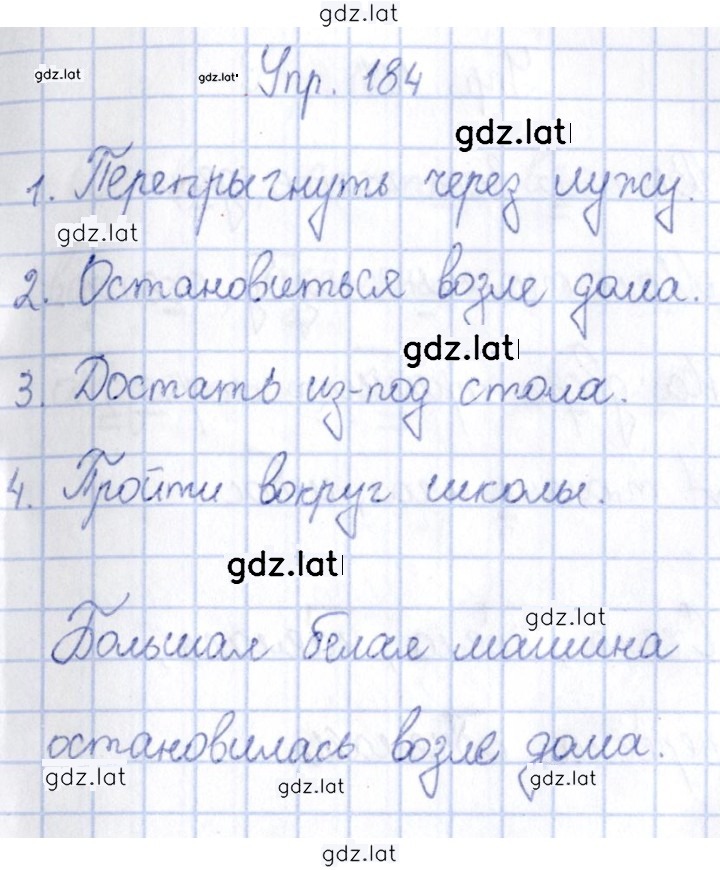 gdz.lat
gdz.lat gdz.lat Упр. 184
gdz.lat
1. Перепрыгнуть через лужу.
gdz.lat
2. Остановиться возле дома.
gdz.lat
3. Достать из-под стола.
4. Пройти вокруг школы.
gdz.lat
gdz.lat
Большая белая машина
остановилась возле дома.
gdz.lat gdz.lat gdz.lat
gdz.lat